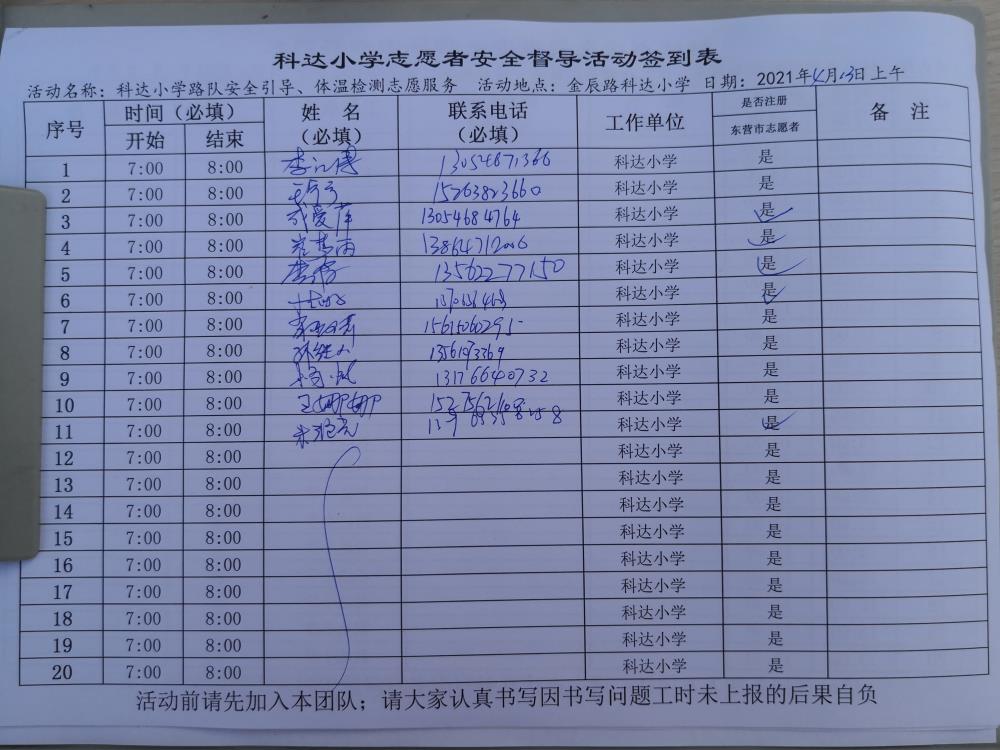 科达小学志愿者安全督导活动签到表
活动名称：科达小学路队安全引导、体温检测志愿服务 活动地点：金辰路科达小学 日期：2021年4月13日上午
序号 时间（必填） 姓 名（必填） 联系电话（必填） 工作单位 是否注册 备 注
开始 结束 东营市志愿者
1 7:00 8:00 13054671366 科达小学 是
2 7:00 8:00 15263823660 科达小学 是
3 7:00 8:00 13054684764 科达小学 是
4 7:00 8:00 13864712006 科达小学 是
5 7:00 8:00 13562277150 科达小学 是
6 7:00 8:00 科达小学 是
7 7:00 8:00 科达小学 是
8 7:00 8:00 科达小学 是
9 7:00 8:00 13176640732 科达小学 是
10 7:00 8:00 王娜娜 科达小学 是
11 7:00 8:00 科达小学 是
12 7:00 8:00 科达小学 是
13 7:00 8:00 科达小学 是
14 7:00 8:00 科达小学 是
15 7:00 8:00 科达小学 是
16 7:00 8:00 科达小学 是
17 7:00 8:00 科达小学 是
18 7:00 8:00 科达小学 是
19 7:00 8:00 科达小学 是
20 7:00 8:00 科达小学 是
活动前请先加入本团队；请大家认真书写因书写问题工时未上报的后果自负